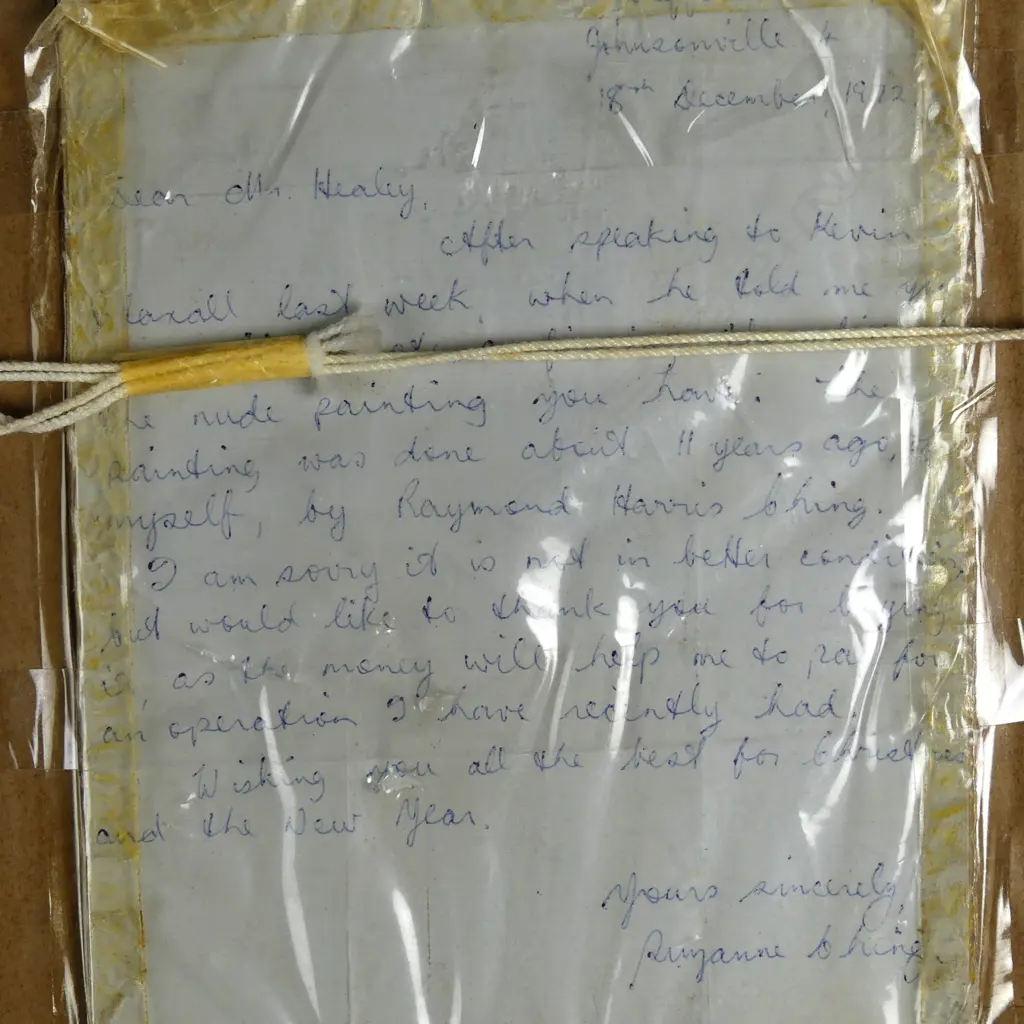 Johnsonville 4
18th December, 1972
Dear Mr. Healey,
After speaking to Kevin
last week, when he told me
the nude painting you have. The
painting was done about 11 years ago,
myself, by Raymond Harris Ching.
I am sorry it is not in better condition
but would like to thank you for buying
it, as the money will help me to pay for
an operation I have recently had.
Wishing you all the best for Christmas
and the New Year.
Yours sincerely,
Suzanne Ching.